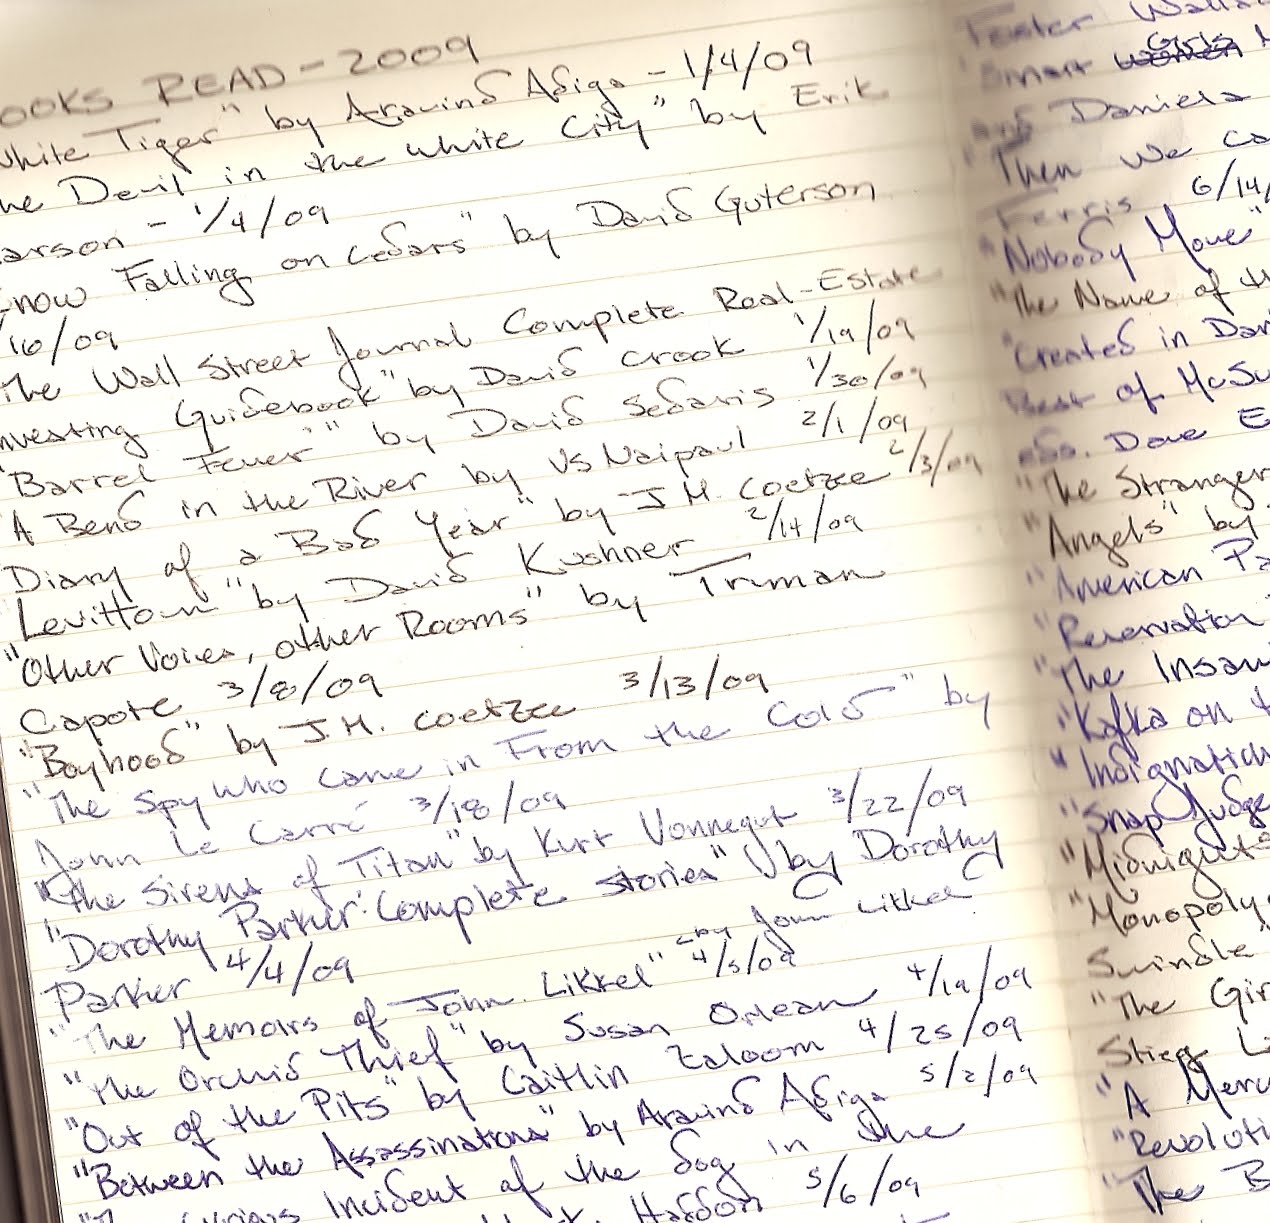 OOKS READ - 2009
White Tiger" by Aravind Adiga - 1/4/09
he Devil in the White City" by Erik
arson - 1/4/09
now Falling on Cedars" by David Guterson
10/09
The Wall Street Journal Complete Real-Estate
nvesting Guidebook" by David Crook 1/19/09
"Barrel Fever" by David Sedaris 1/30/09
"A Bend in the River by VS Naipaul 2/1/09
Diary of a Bad Year" by J.M. Coetzee 2/3/09
"Levittown" by David Kushner 2/14/09
"Other Voices, other Rooms" by Truman
Capote 3/8/09
"Boyhood" by J.M. Coetzee 3/13/09
"The Spy who came in From the Cold" by
John Le Carré 3/18/09
"The Sirens of Titan" by Kurt Vonnegut 3/22/09
"Dorothy Parker: Complete Stories" by Dorothy
Parker 4/4/09
"The Memoirs of John Likkel" by John Likkel 4/5/09
"The Orchid Thief" by Susan Orlean 4/19/09
"Out of the Pits" by Caitlin Zaloom 4/25/09
"Between the Assassinations" by Aravind Adiga 5/2/09
"The Curious Incident of the Dog in the
Haddon 5/6/09
Foster Walla
"Smart Girls
and Daniela
"Then We Ca
Ferris 6/14/
"Nobody Move"
"The Name of th
"Created in Dar
Best of McSw
eds. Dave E
"The Stranger
"Angels" by
"American Pa
"Reservation
"The Insan
"Kafka on t
"Indignation
"Snap Judge
"Midnight
"Monopoly
Swindle
"The Gir
Stieg L
"A Merc
"Revoluti
"The B